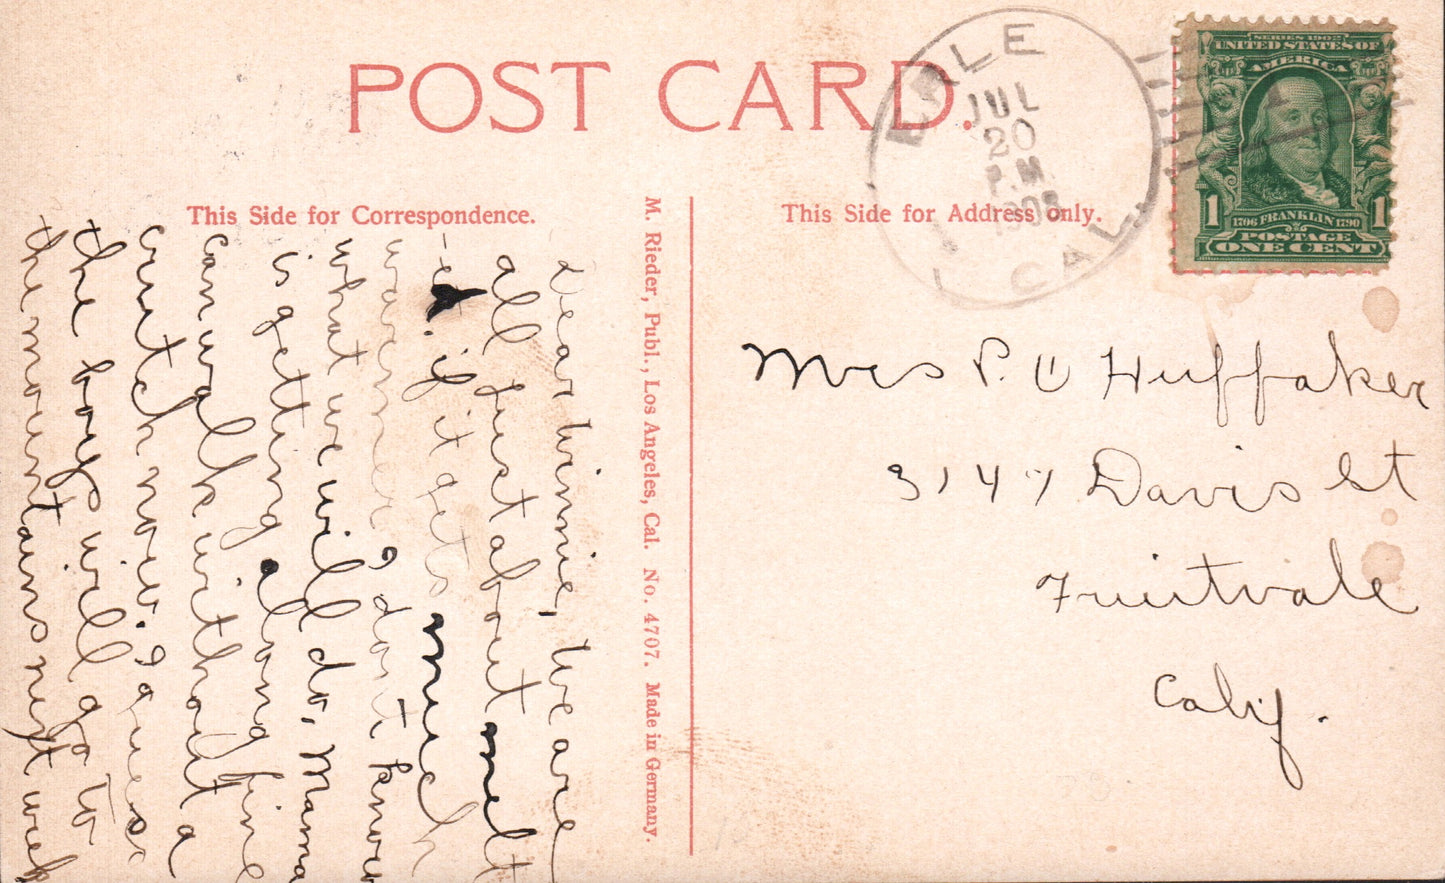 POST CARD.
This Side for Correspondence.
This Side for Address only.
JUL
20
P.M.
CAL.
SERIES 1902
UNITED STATES OF
AMERICA
1 1706 FRANKLIN 1790 1
POSTAGE
ONE CENT
M. Rieder, Publ., Los Angeles, Cal. No. 4707. Made in Germany.
Dear Winnie, We are
all just about melt
-ed. if it gets much
warmer I dont know
what we will do, Mama
is getting along fine
can walk without a
crutch now. I guess
the boys will go to
the mountains next week
Mrs P. U Huffaker
3147 Davis St
Fruitvale
Calif.